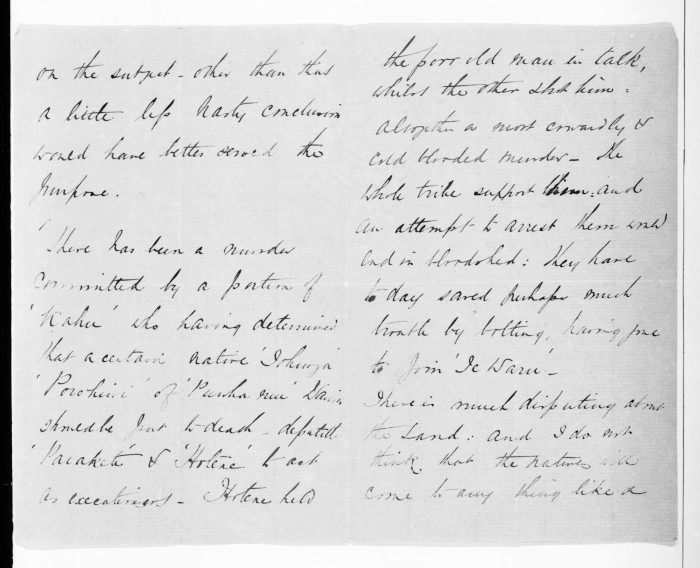 on the subject - other than that
a little less hasty conclusion
would have better served the
purpose.
There has been a murder
committed by a portion of
'Kahu' who having determined
that a certain native
of 'Puwha
should be put to death - deputed
& 'Hotene' to act
as executioners - Hotene held
the poor old man in talk,
whilst the other shot him:
altogether a most cowardly &
cold blooded murder - The
whole tribe support them: and
an attempt to arrest them would
end in bloodshed: They have
to day saved perhaps much
trouble by bolting, having gone
to join 'Te Waru' -
There is much disputing about
the Land: and I do not
think that the natives will
come to any thing like a